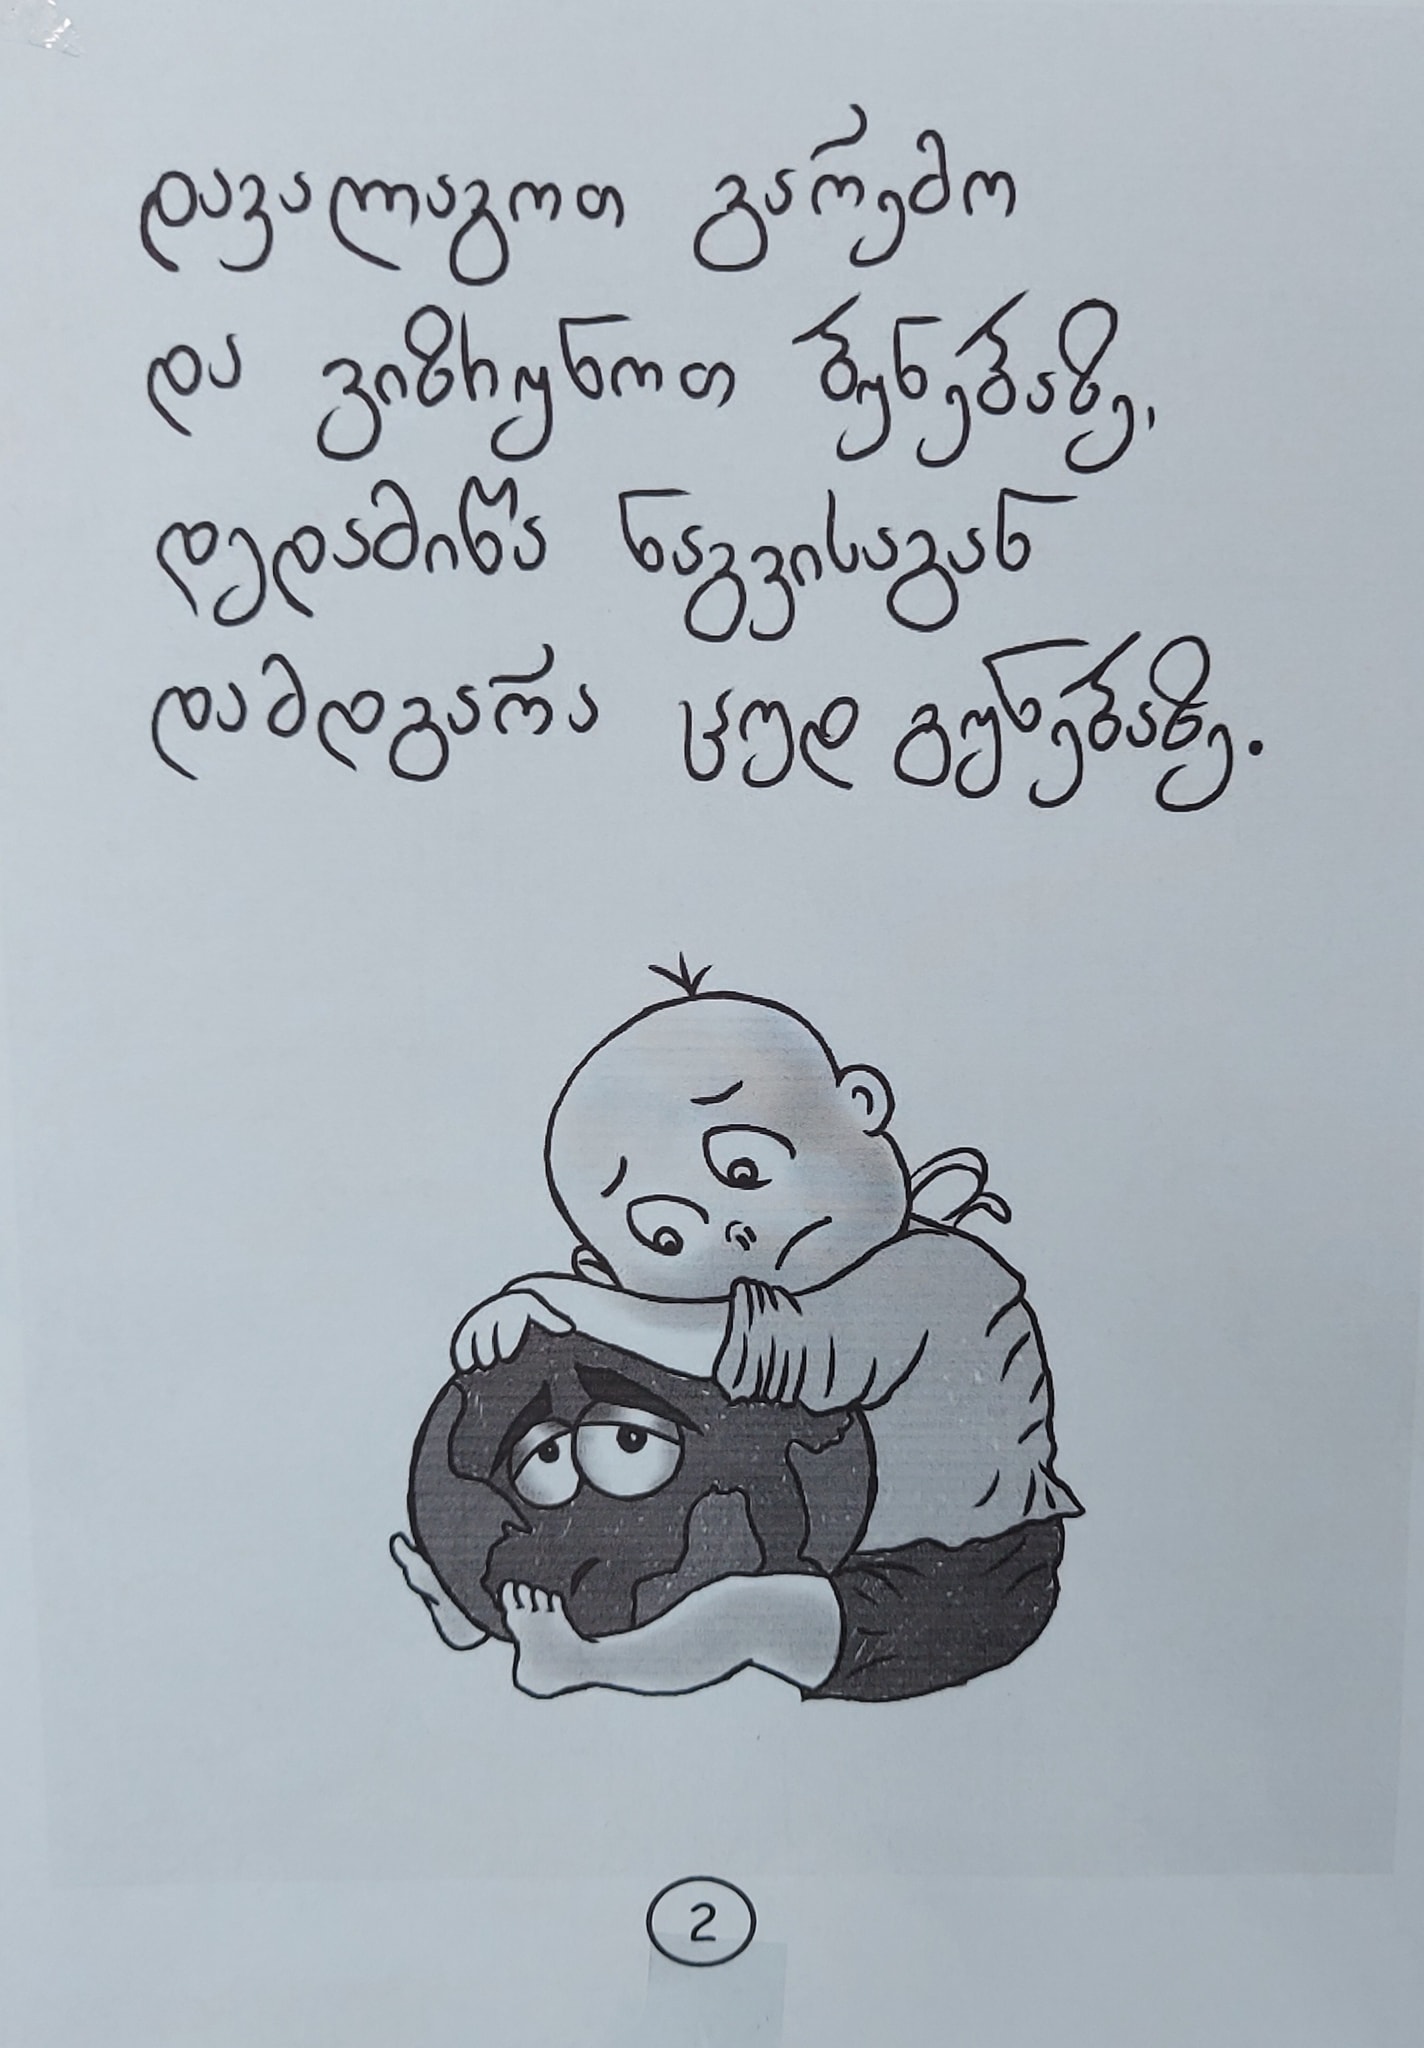 დავალაგოთ გარემო
და ვიზრუნოთ ბუნებაზე,
დედამიწა ნაგვისაგან
დამდგარა ცუდ გუნებაზე.
2